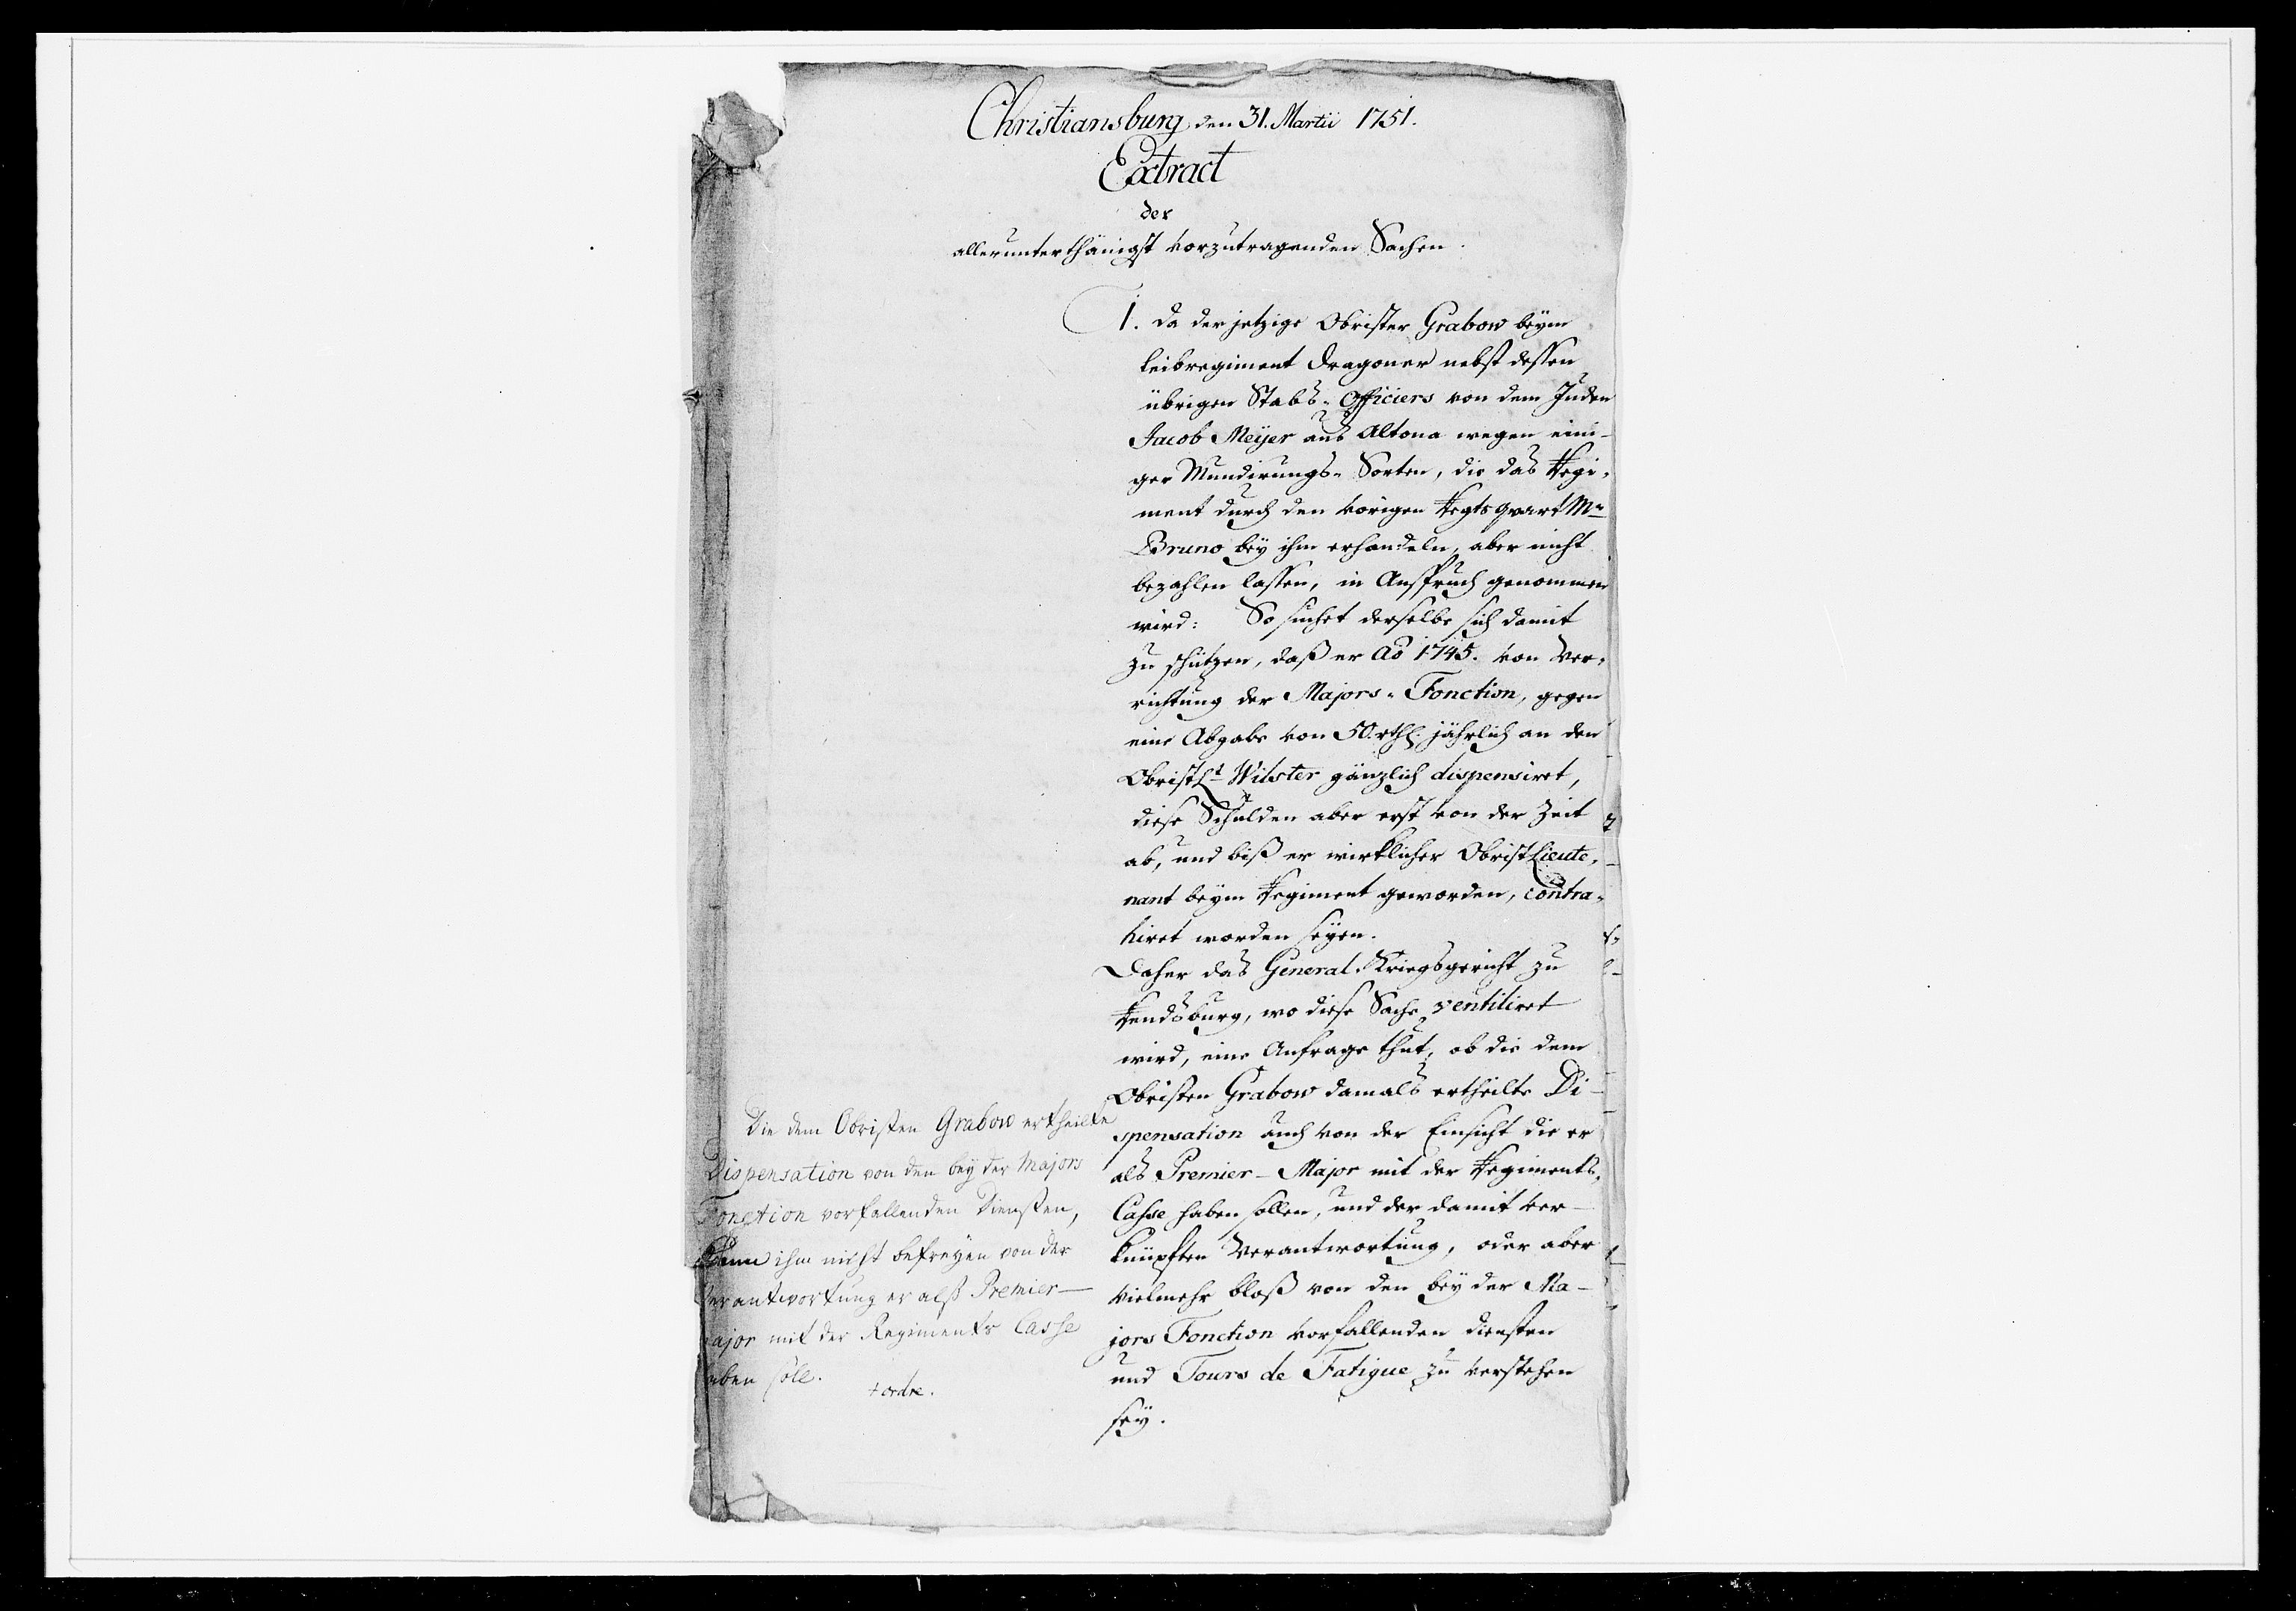 Christiansburg den 31. Martii 1751.
Extract
der
allerunterthänigst vorzutragenden Sachen.
1. Da der jetzige Obrister Grabow beÿm
Leibregiment Dragoner nebst dessen
übrigen Stabs-Officiers von dem Juden
Jacob Meÿer aus Altona wegen eini-
ger Mundirungs-Sorten, die das Regi-
ment durch den vorigen Regtsqvart Mr
Bruno beÿ ihm erhandeln, aber nicht
bezahlen lassen, in Anspruch genommen
wird: So suchet derselbe sich damit
zu schützen, daß er Ao 1745. von Ver-
richtung der Majors-Fonction, gegen
eine Abgabe von 50. rthl. jährlich an den
Obristlt Wilster gänzlich dispensiret,
diese Schulden aber erst von der Zeit
ab, und biß er wirklicher Obristlieute-
nant beÿm Regiment geworden, contra-
hiret worden seÿen.
Daher das General-Kriegsgericht zu
Rendsburg, wo diese Sache ventiliret
wird, eine Anfrage thut, ob die dem
Obristen Grabow damals ertheilte Di-
spensation auch von der Einsicht die er
als Premier-Major mit der Regiments-
Casse haben sollen, und der damit ver-
knüpften Verantwortung, oder aber
vielmehr bloß von den beÿ der Ma-
jors Fonction vorfallenden Diensten
und Tours de Fatigue zu verstehen
seÿ.
Die dem Obristen Grabow ertheilte
Dispensation von den beÿ der Majors
Fonction vorfallenden Diensten,
kann ihm nicht befreÿen von der
Verantwortung er alß Premier-
ajor mit der Regiments Casse
aben soll.
+ ordre.